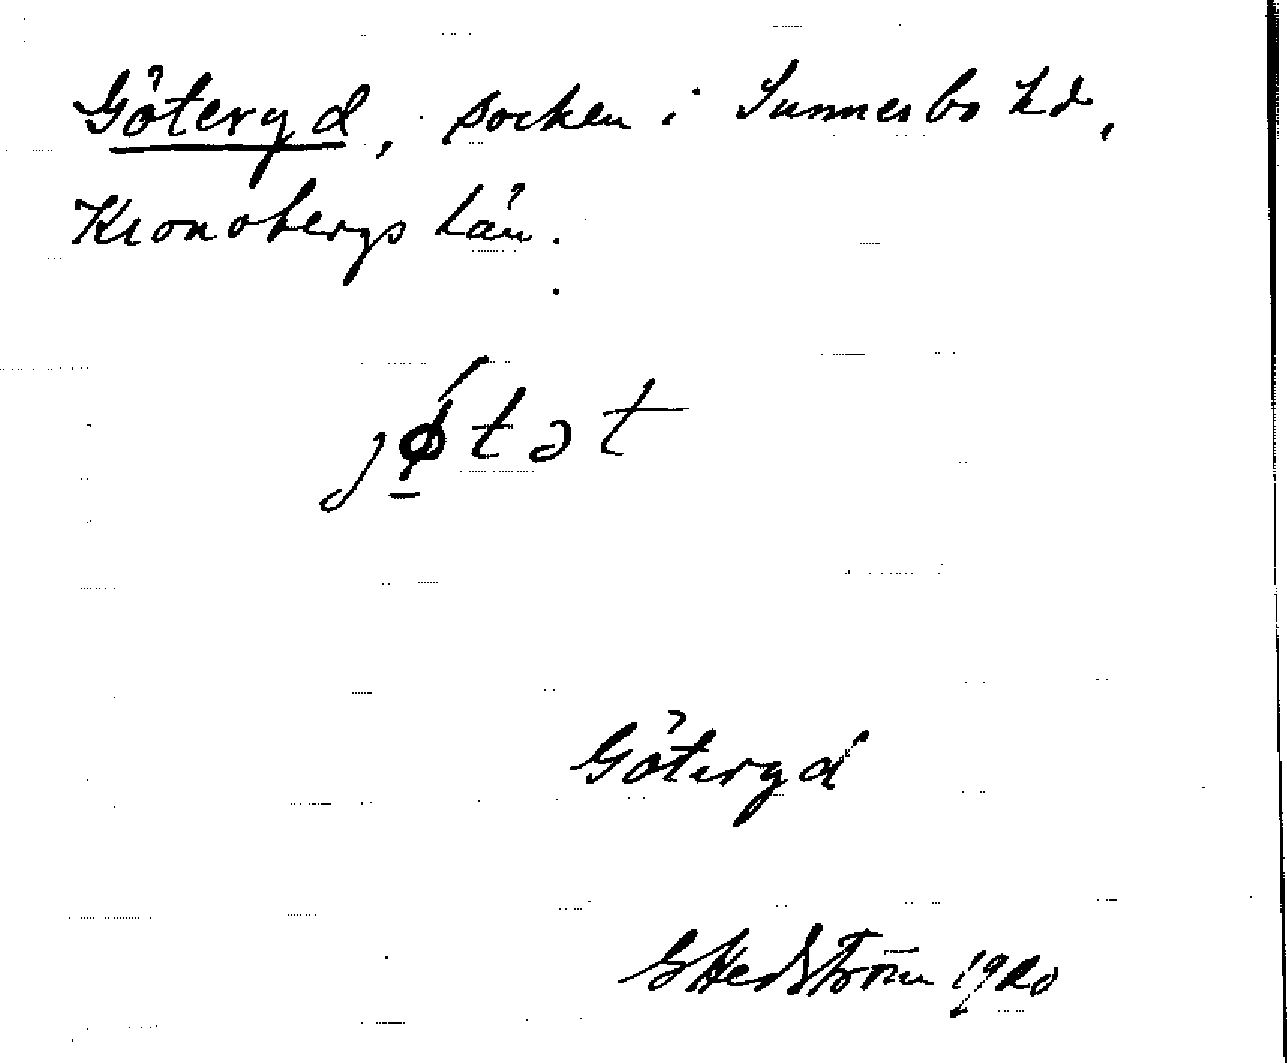 Göteryd, socken i Sunnerbo hd,
Kronobergs län.
jǿ̱tət
Göteryd
G Hedström 1920